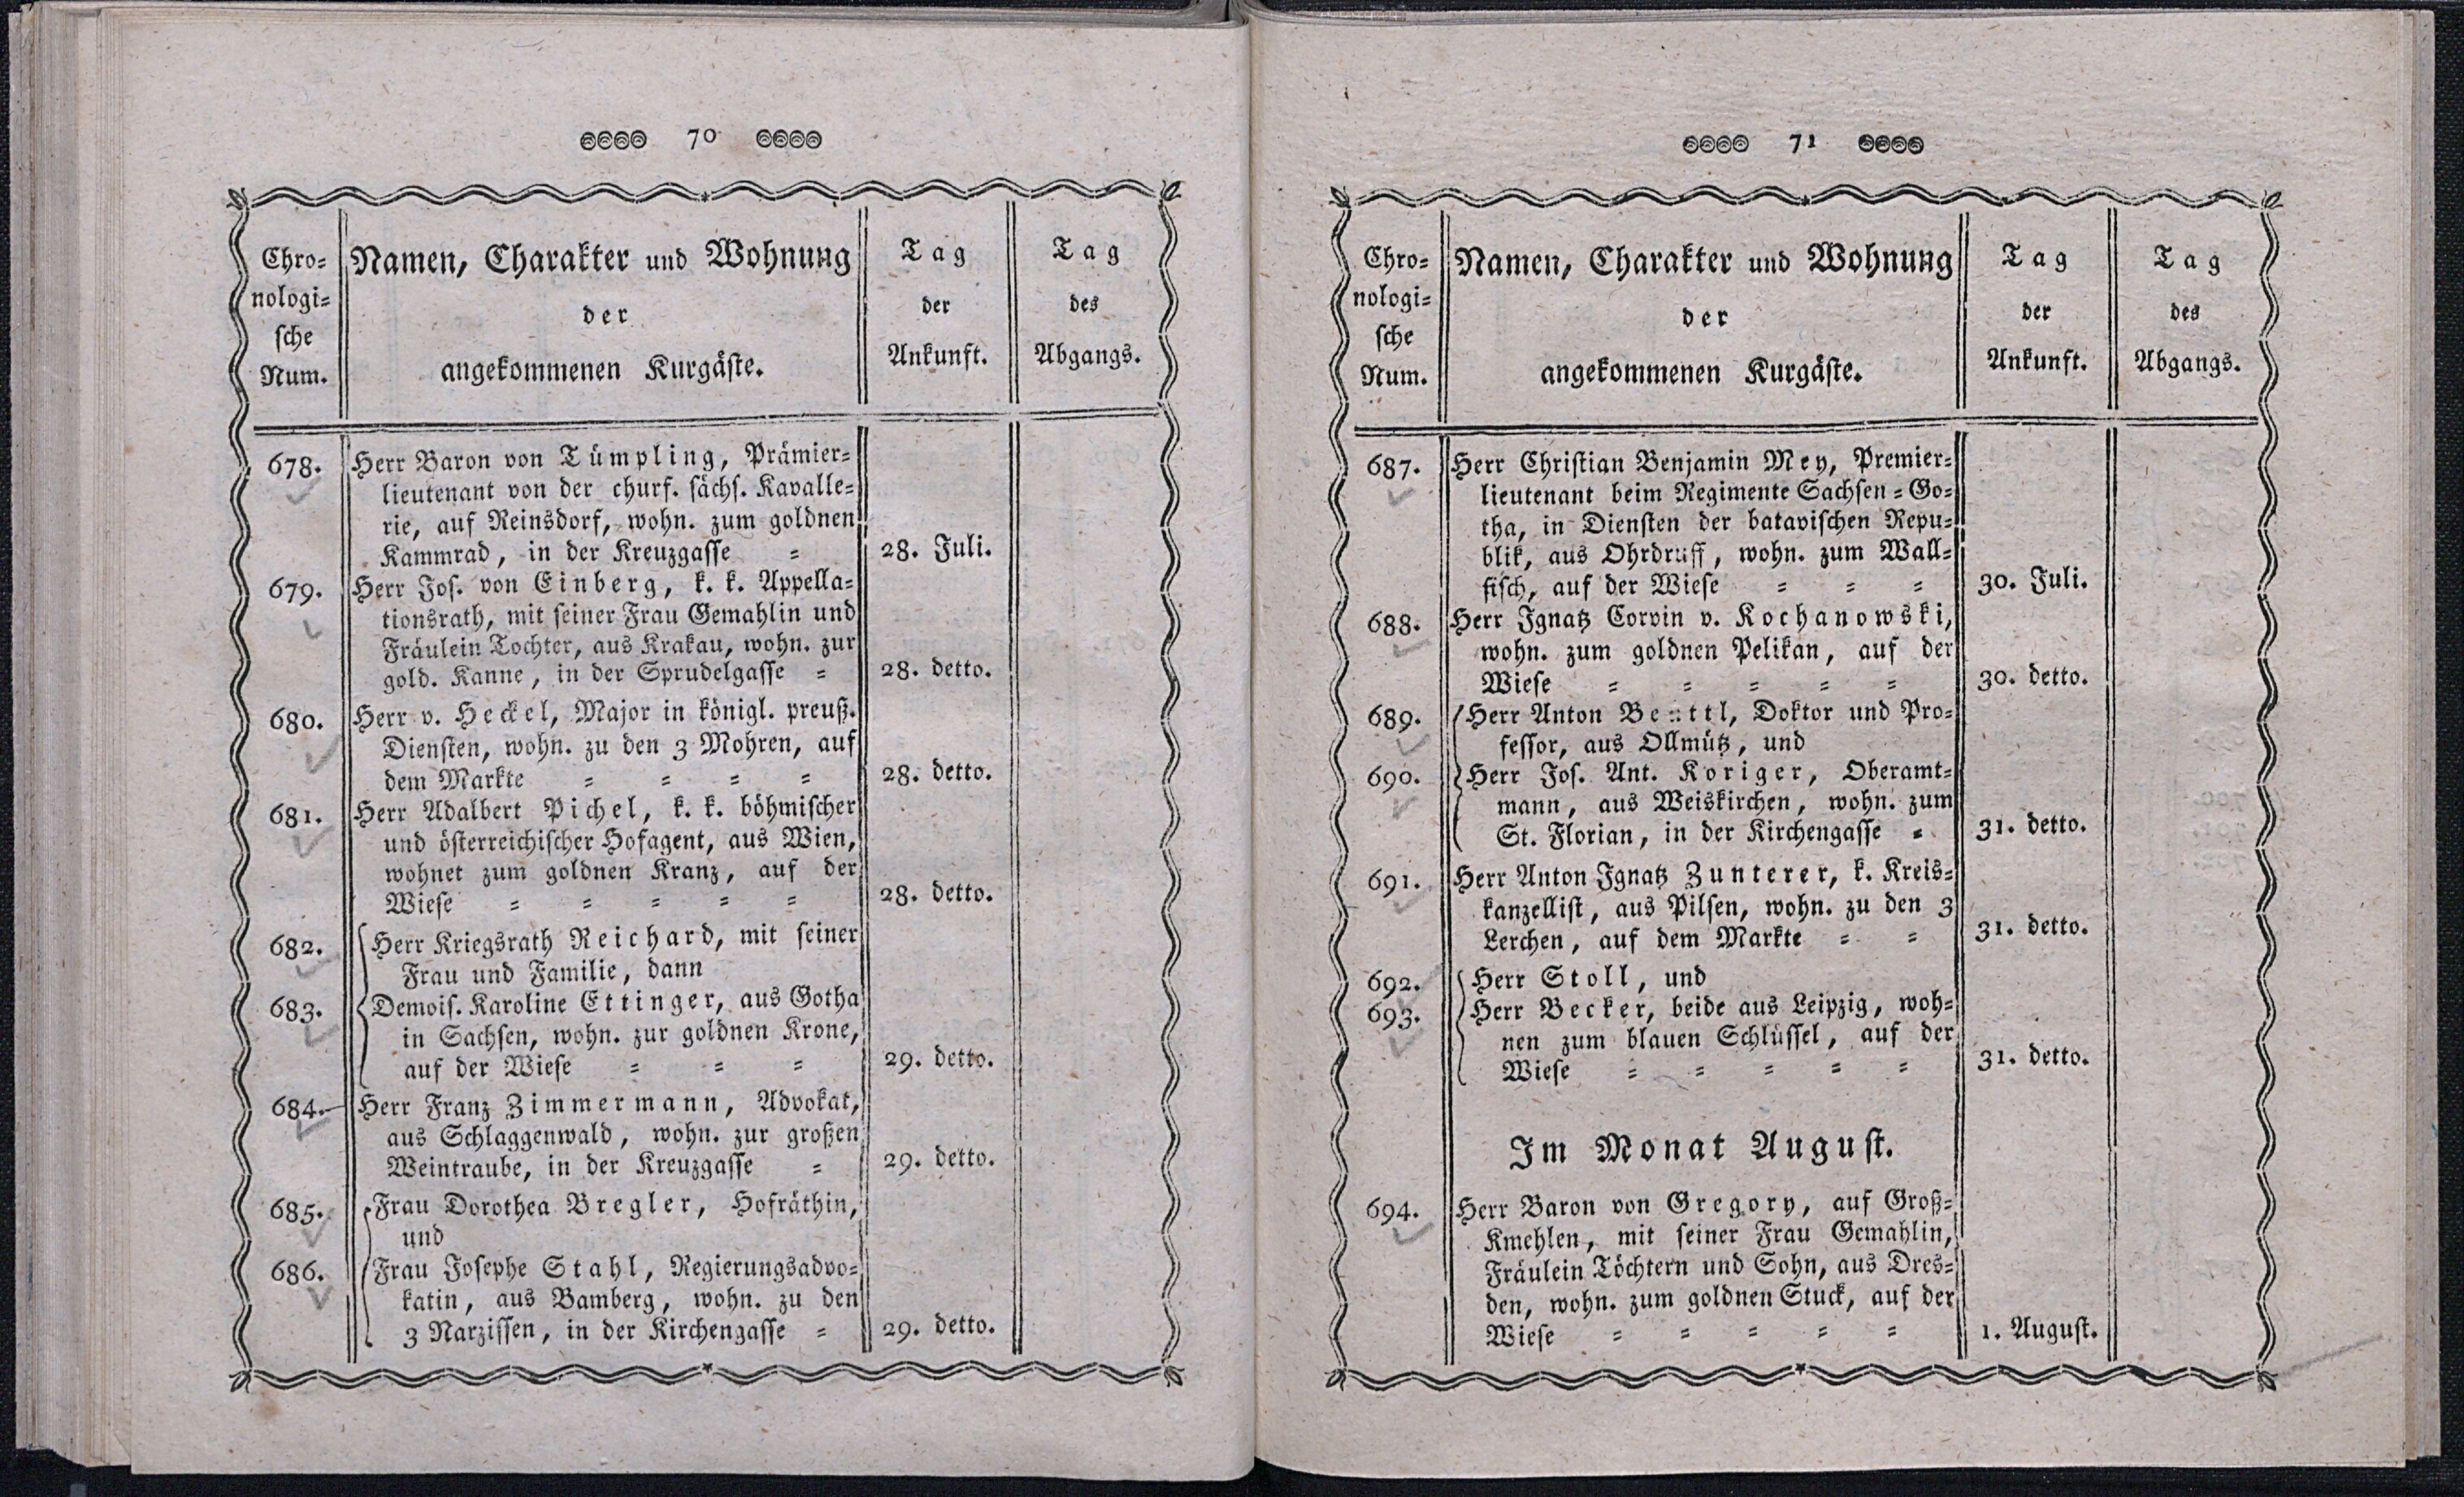 70
Chro-
nologi-
sche
Num.
Namen, Charakter und Wohnung
der
angekommenen Kurgäste.
Tag
der
Ankunft.
Tag
des
Abgangs.
678. Herr Baron von Tümpling, Prämier-
lieutenant von der churf. sächs. Kavalle-
rie, auf Reinsdorf, wohn. zum goldnen
Kammrad, in der Kreuzgasse = 28. Juli.
679. Herr Jos. von Einberg, k. k. Appella-
tionsrath, mit seiner Frau Gemahlin und
Fräulein Tochter, aus Krakau, wohn. zur
gold. Kanne, in der Sprudelgasse = 28. detto.
680. Herr v. Heckel, Major in königl. preuß.
Diensten, wohn. zu den 3 Mohren, auf
dem Markte = = = = 28. detto.
681. Herr Adalbert Pichel, k. k. böhmischer
und österreichischer Hofagent, aus Wien,
wohnet zum goldnen Kranz, auf der
Wiese = = = = = 28. detto.
682. Herr Kriegsrath Reichard, mit seiner
Frau und Familie, dann
683. Demois. Karoline Ettinger, aus Gotha
in Sachsen, wohn. zur goldnen Krone,
auf der Wiese = = = 29. detto.
684. Herr Franz Zimmermann, Advokat,
aus Schlaggenwald, wohn. zur großen
Weintraube, in der Kreuzgasse = 29. detto.
685. Frau Dorothea Bregler, Hofräthin,
und
686. Frau Josephe Stahl, Regierungsadvo-
katin, aus Bamberg, wohn. zu den
3 Narzissen, in der Kirchengasse = 29. detto.
71
Chro-
nologi-
sche
Num.
Namen, Charakter und Wohnung
der
angekommenen Kurgäste.
Tag
der
Ankunft.
Tag
des
Abgangs.
687. Herr Christian Benjamin Mey, Premier-
lieutenant beim Regimente Sachsen-Go-
tha, in Diensten der batavischen Repu-
blik, aus Ohrdruff, wohn. zum Wall-
fisch, auf der Wiese = = = 30. Juli.
688. Herr Ignatz Corvin v. Kochanowski,
wohn. zum goldnen Pelikan, auf der
Wiese = = = = = 30. detto.
689. Herr Anton Doktor und Pro-
fessor, aus Ollmütz, und
690. Herr Jos. Ant. Koriger, Oberamt-
mann, aus Weiskirchen, wohn. zum
St. Florian, in der Kirchengasse = 31. detto.
691. Herr Anton Ignatz Zunterer, k. Kreis-
kanzellist, aus Pilsen, wohn. zu den 3
Lerchen, auf dem Markte = = 31. detto.
692. Herr Stoll, und
693. Herr Becker, beide aus Leipzig, woh-
nen zum blauen Schlüssel, auf der
Wiese = = = = = 31. detto.
Im Monat August.
694. Herr Baron von Gregory, auf Groß-
Kmehlen, mit seiner Frau Gemahlin,
Fräulein Töchtern und Sohn, aus Dres-
den, wohn. zum goldnen Stuck, auf der
Wiese = = = = = 1. August.